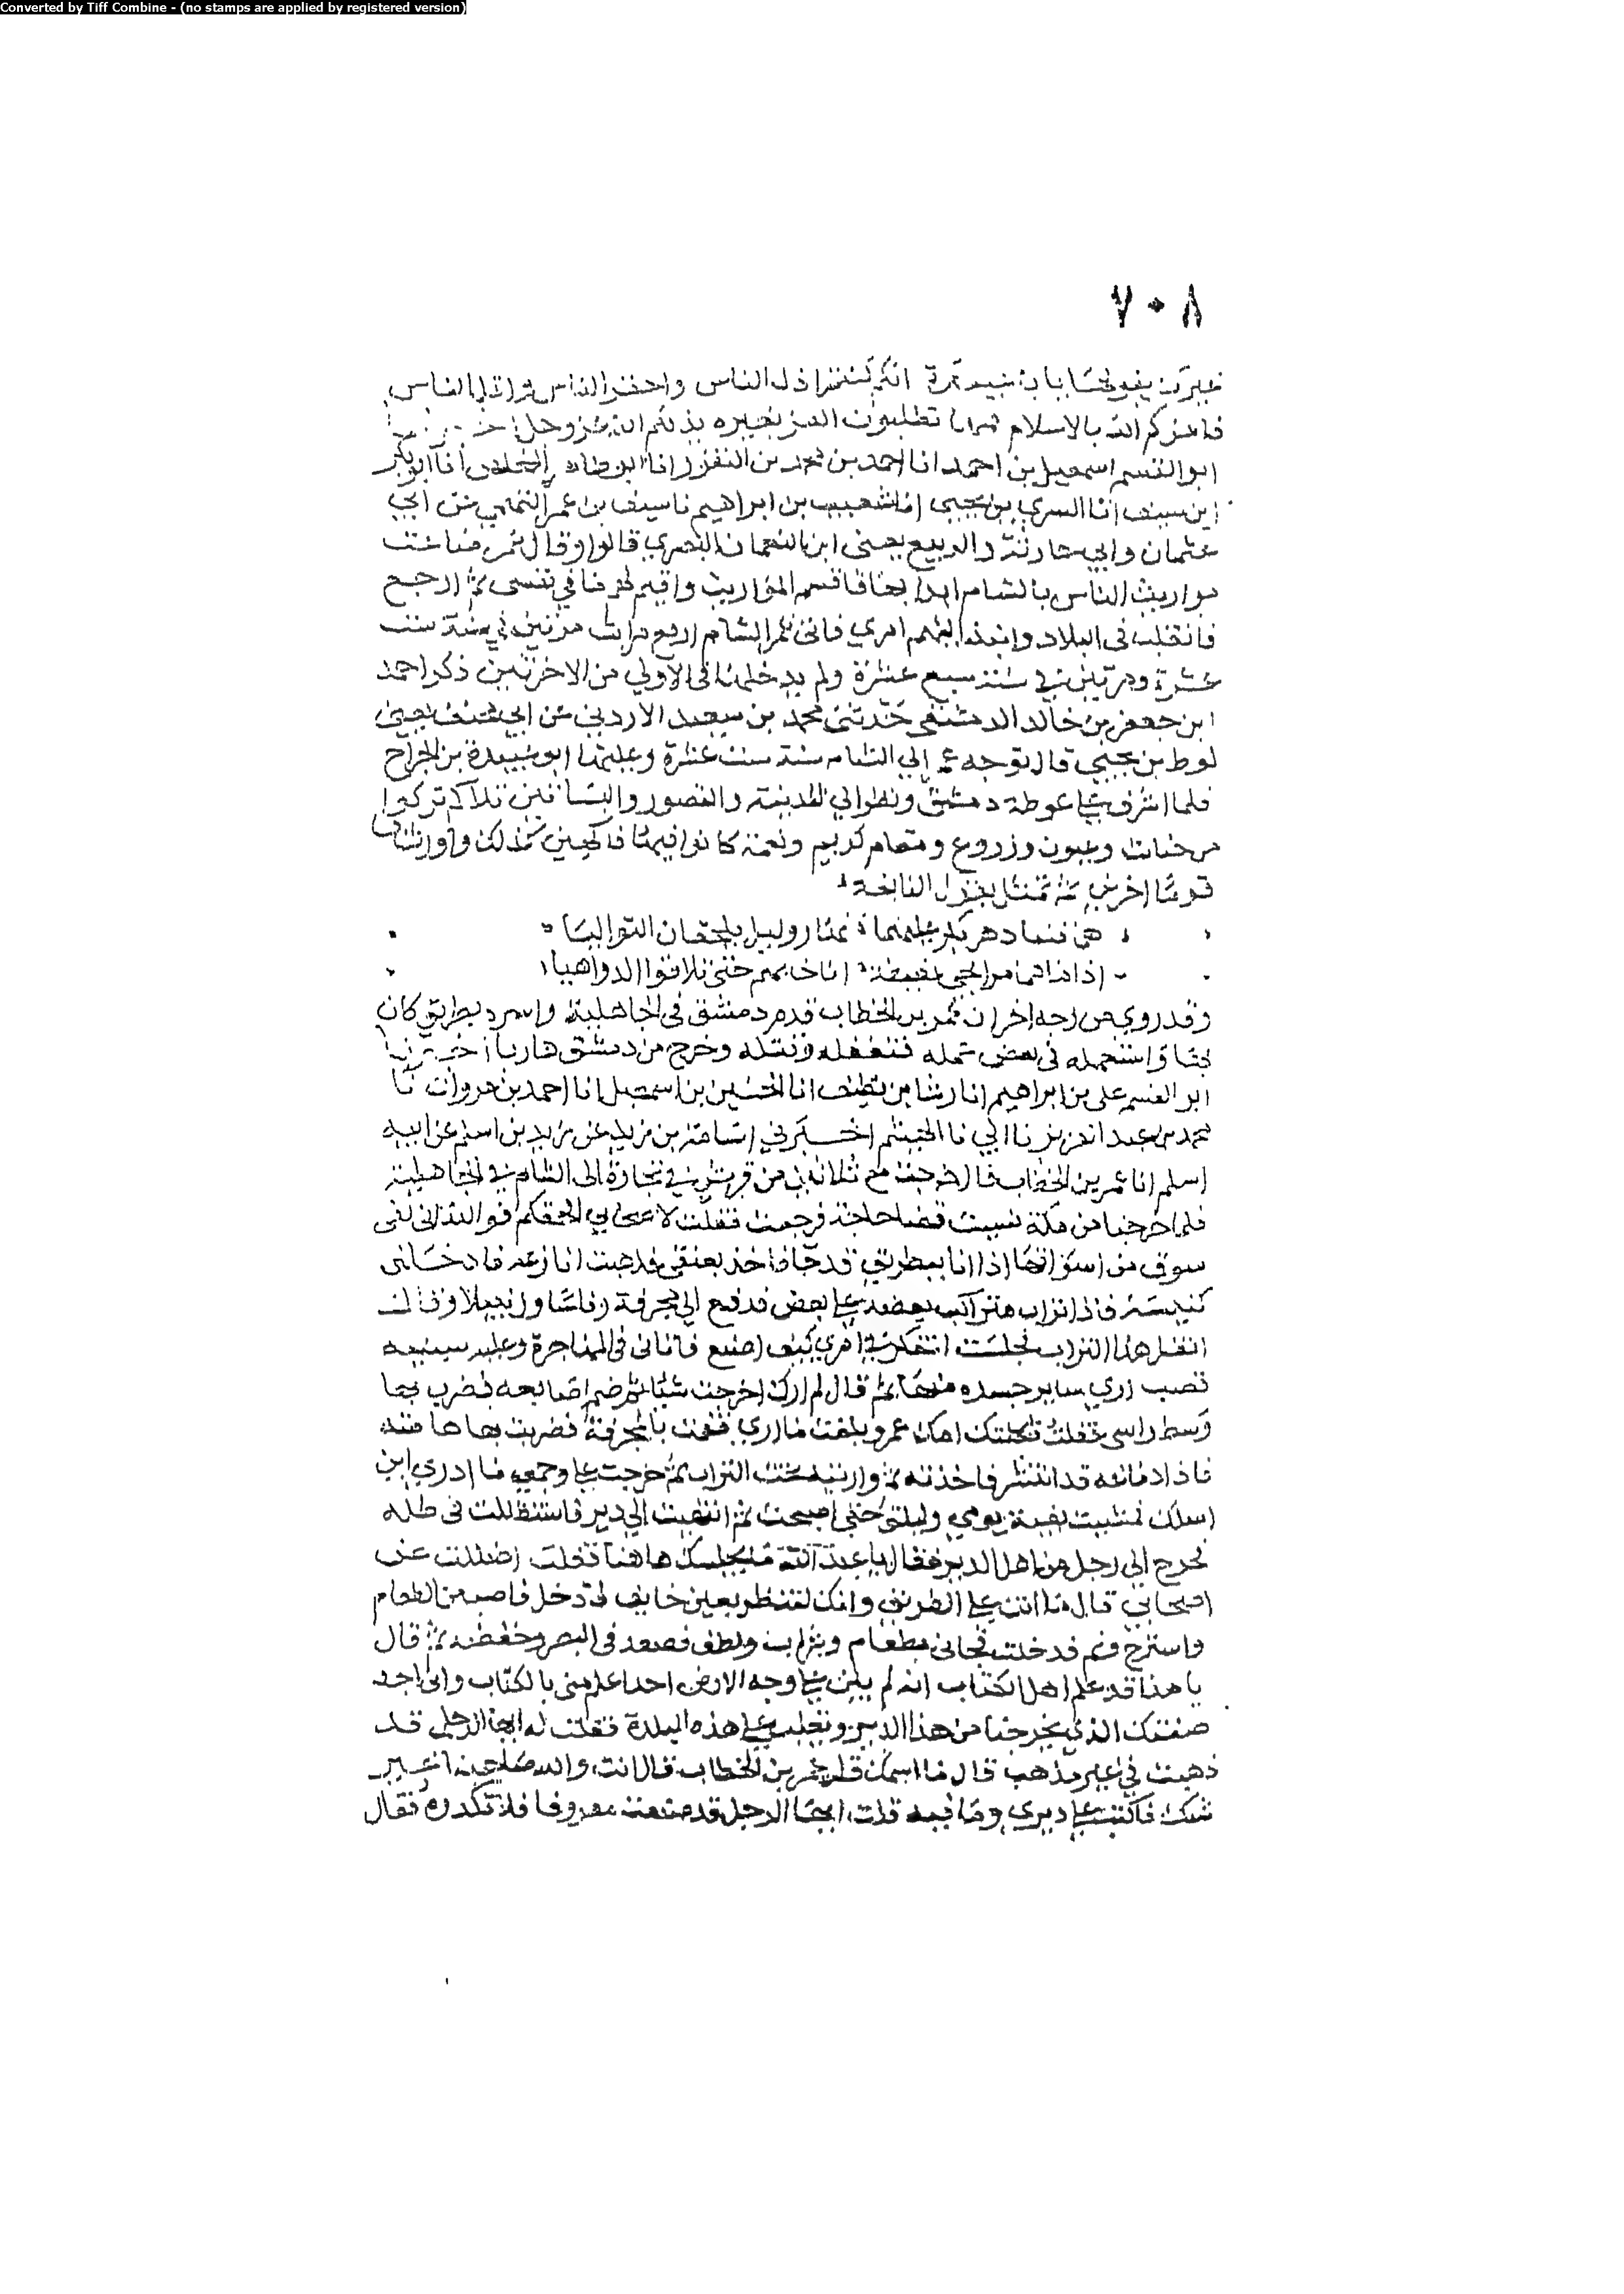 Converted by Tiff Combine - (no stamps are applied by registered version)
٧٠٨
غيرك يقولها يابا عبيدة انكم كنتم اذل الناس واحقر الناس واقل الناس
فاعزكم الله بالاسلام فمهما تطلبون العز بغيره يذلكم الله عز وجل
ابو القسم اسمعيل بن احمد انا احمد بن محمد بن النقور انا ابو طاهر المخلص انا ابو بكر
ابن سيف انا السري بن يحيى انا شعيب بن ابراهيم نا سيف بن عمر التميمي عن ابي
عثمان وابي حارثة والربيع يعني ابن النعمان البصري قالوا وقال عمر ضاعت
مواريث الناس بالشام ابدا بها فاقسم المواريث واقيم لهم ما في نفسي ثم ارجع
فاتقلب في البلاد وانبذ اليهم امري فاتى عمر الشام اربع مرات مرتين في سنة ست
عشرة ومرتين في سنة سبع عشرة ولم يدخلها في الاولى من الاخرتين ذكر احمد
ابن جعفر بن خالد الدمشقي حدثني محمد بن سعيد الاردني عن ابي مخنف يعني
لوط بن يحيى قال توجه عمر الى الشام سنة ست عشرة وعليها ابو عبيدة بن الجراح
فلما اشرف على غوطة دمشق ونظر الى المدينة والقصور والبساتين تلا كم تركوا
من جنات وعيون وزروع ومقام كريم ونعمة كانوا فيها فاكهين كذلك واورثناها
قوما اخرين ثم تمثل بقول النابغة
هما فتيا دهر يكر عليهما نهار وليل يلحقان التواليا
اذا ما هما مرا بحي بغبطة اناخا بهم حتى تلاقوا الدواهيا
وقد روي من وجه اخر ان عمر بن الخطاب قدم دمشق في الجاهلية واسره بطريق كان
بها واستعمله في بعض عمله فتغفله وقتله وخرج من دمشق هاربا اخبرنا
ابو القسم علي بن ابراهيم انا رشا بن نظيف انا الحسن بن اسمعيل انا احمد بن مروان نا
محمد بن عبد العزيز نا ابي نا الهيثم اخبرني اسامة بن زيد عن زيد بن اسلم عن ابيه
اسلم انا عمر بن الخطاب قال خرجت مع ثلاثين من قريش في تجارة الى الشام في الجاهلية
فلما خرجنا من مكة نسيت قضا حاجة فرجعت فقلت لاصحابي الحقكم فوالله اني لفي
سوق من اسواقها اذا انا ببطريق قد جا فاخذ بعنقي فذهبت انازعه فادخلني
كنيسة فاذا تراب متراكب بعضه على بعض فدفع الي مجرفة وفاسا وزنبيلا وقال
انقل هذا التراب فجلست اتفكر في امري كيف اصنع فاتاني في الهاجرة وعليه سبنية
قصب ارى ساير جسده منها ثم قال لم ارك اخرجت شيا ثم ضم اصابعه فضرب بها
وسط راسي فقلت ثكلتك امك عمر وبلغت ما ارى فقمت بالمجرفة فضربت بها هامته
فاذا دماغه قد انتثر فاخذته ثم واريته تحت التراب ثم خرجت على وجهي ما ادري اين
اسلك فمشيت بقية يومي وليلتي حتى اصبحت ثم انتهيت الى دير فاستظللت في ظله
فخرج الي رجل من اهل الدير فقال يا عبد الله ما يجلسك هاهنا فقلت اضللت عن
اصحابي قال ما انت على الطريق وانك لتنظر بعين خايف ادخل فاصب من الطعام
واسترح ونم فدخلت فجاني بطعام وشراب ولطف فصعد في البصر وخفضه ثم قال
يا هذا قد علم اهل الكتاب انه لم يبق على وجه الارض احد اعلم مني بالكتاب واني اجد
صفتك الذي يخرجنا من هذا الدير ويغلب على هذه البلدة فقلت له ايها الرجل قد
ذهبت في غير مذهب قال ما اسمك قلت عمر بن الخطاب قال انت والله صاحبنا غير
شك فاكتب على ديري وما فيه قلت ايها الرجل قد صنعت معروفا فلا تكدره فقال